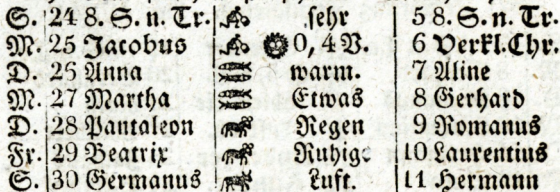 S. 24 8. S. n. Tr. sehr 5 8. S. n. Tr.
M. 25 Jacobus 0, 4 V. 6 Verkl. Chr.
D. 26 Anna warm. 7 Aline
M. 27 Martha Etwas 8 Gerhard
D. 28 Pantaleon Regen 9 Romanus
Fr. 29 Beatrix Ruhige 10 Laurentius
S. 30 Germanus Luft. 11 Hermann